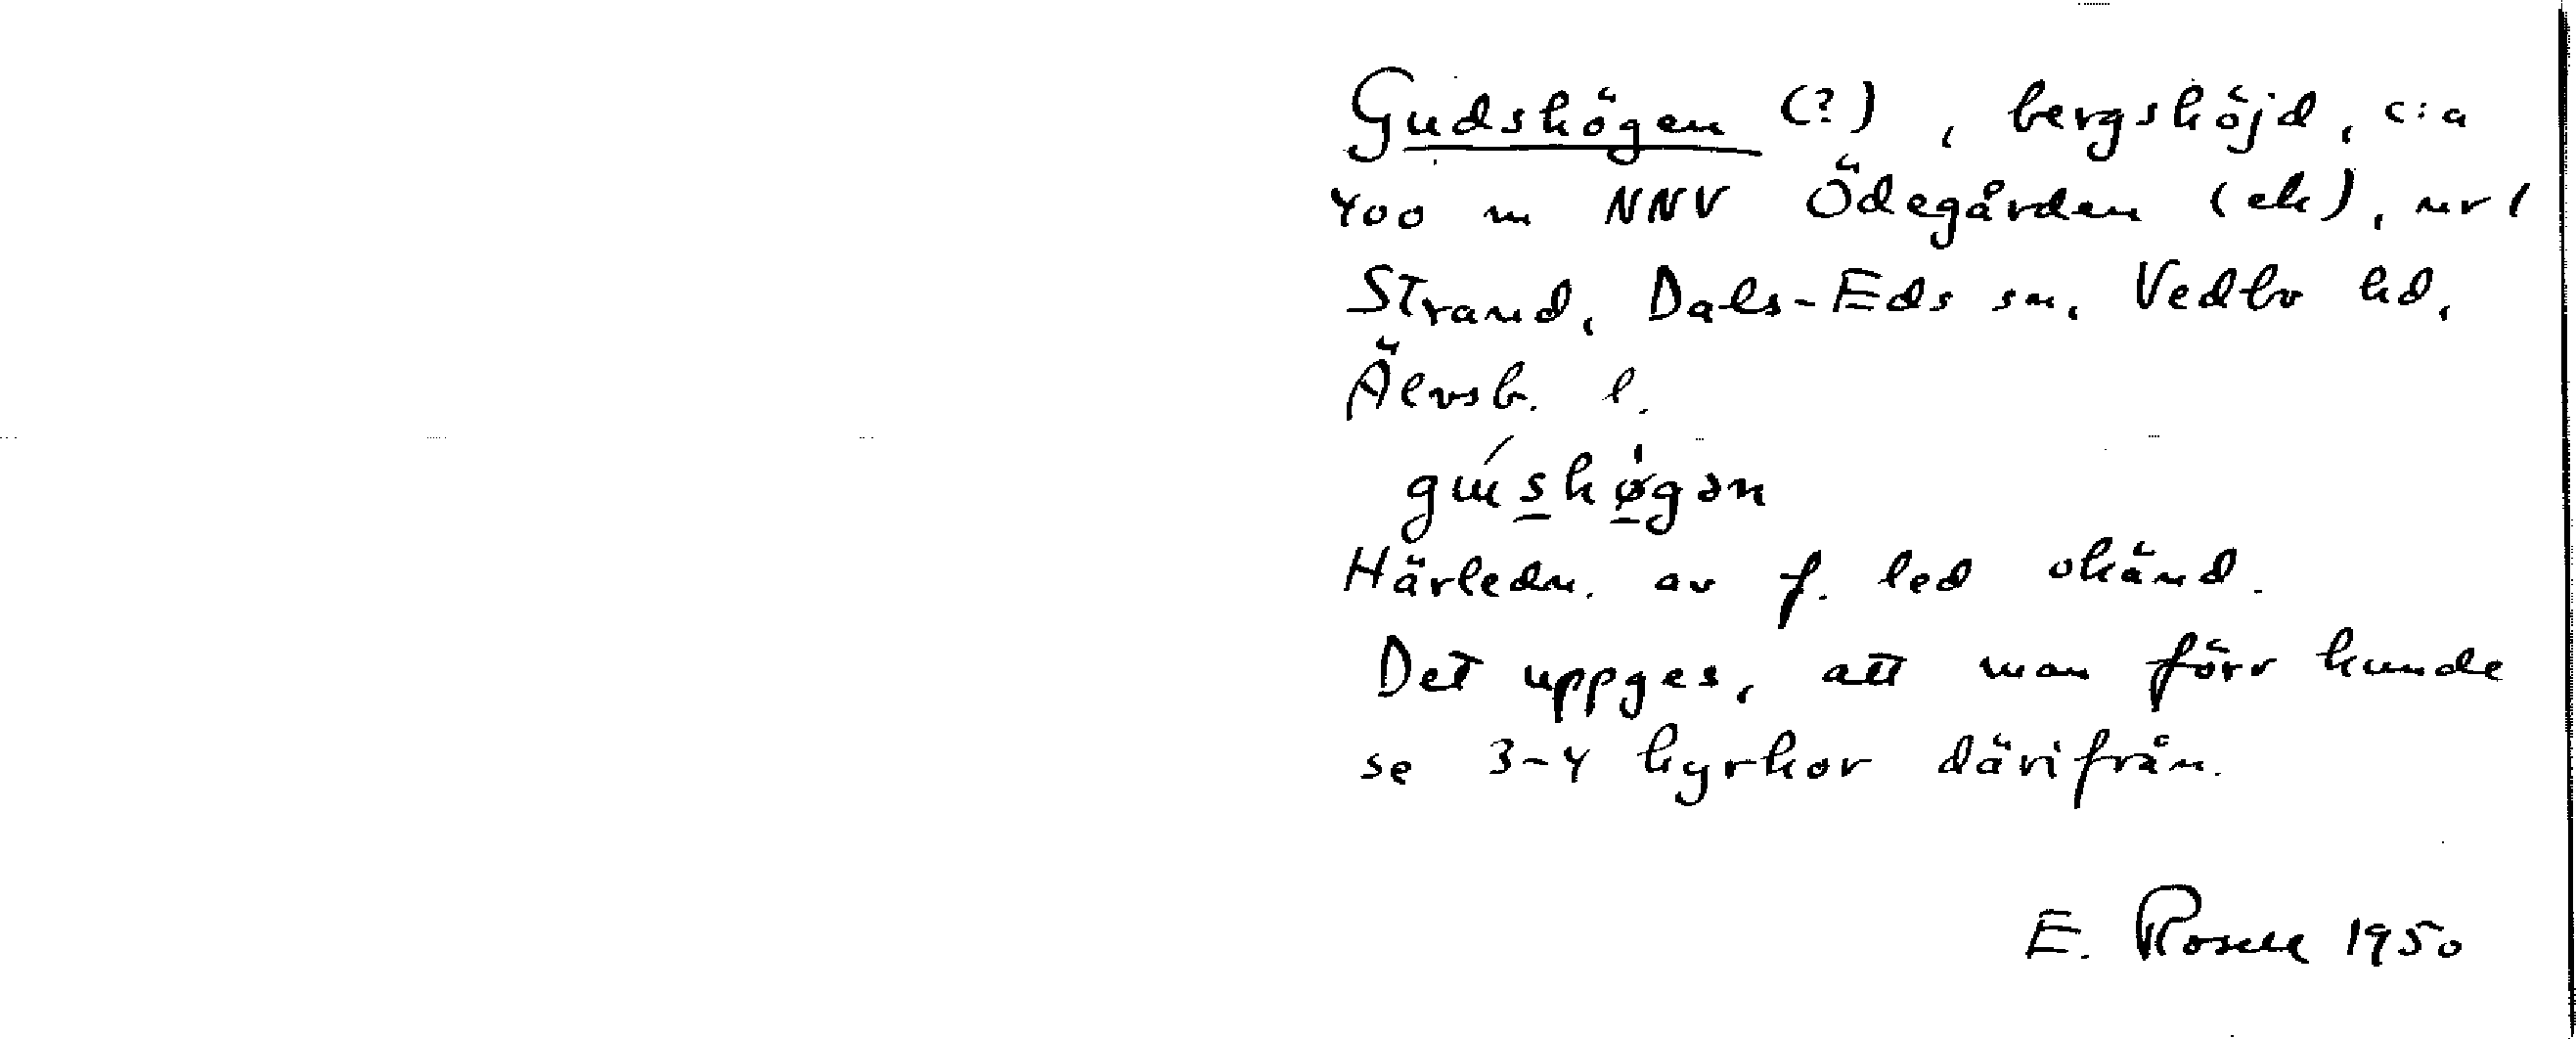 Gudshögen (?), bergshöjd, c:a
400 m NNV Ödegården (ek), nr 1
Strand, Dals-Eds sn, Vedbo hd,
Älvsb. l.
Härledn. av f. led okänd.
Det uppges, att man förr kunde
se 3-4 kyrkor därifrån.
E. Rosell 1950